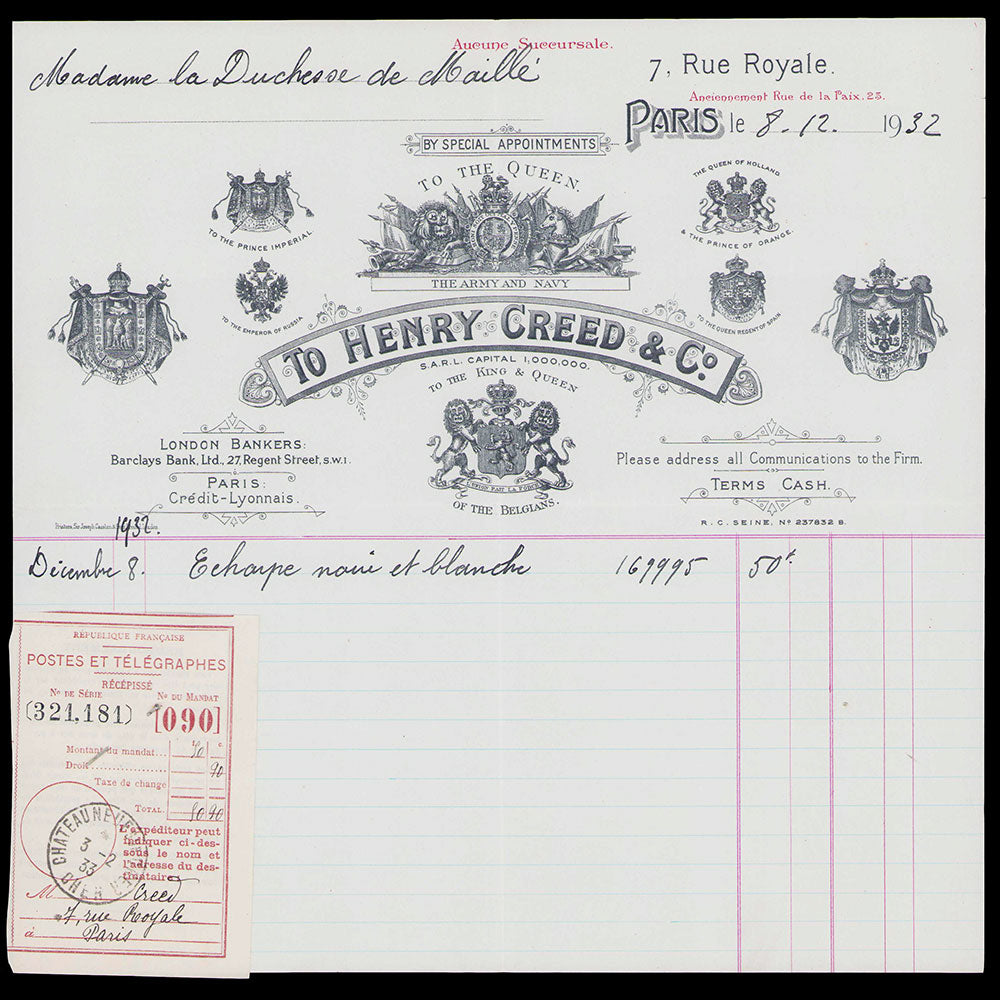 Aucune Succursale.
Madame la Duchesse de Maillé
7, Rue Royale.
Anciennement Rue de la Paix. 25.
PARIS le 8.12. 1932
BY SPECIAL APPOINTMENTS
TO THE QUEEN.
THE ARMY AND NAVY
TO THE PRINCE IMPERIAL
THE QUEEN OF HOLLAND
& THE PRINCE OF ORANGE.
TO THE EMPEROR OF RUSSIA
TO THE QUEEN REGENT OF SPAIN
TO HENRY CREED & Co.
S.A.R.L. CAPITAL 1,000,000.
TO THE KING & QUEEN
OF THE BELGIANS.
LONDON BANKERS:
Barclays Bank, Ltd., 27, Regent Street, S.W.1.
PARIS:
Crédit-Lyonnais.
Please address all Communications to the Firm.
TERMS CASH.
R.C. SEINE, No 237832 B.
1932.
Décembre 8. Echarpe noire et blanche 169995 50f.
RÉPUBLIQUE FRANÇAISE
POSTES ET TÉLÉGRAPHES
RÉCÉPISSÉ
No DE SÉRIE No DU MANDAT
(321,181) [090]
f. c.
Montant du mandat... 50
Droit.................. 90
Taxe de change
TOTAL. 50 90
L'expéditeur peut
indiquer ci-des-
sous le nom et
l'adresse du des-
tinataire:
CHATEAUNEUF
3 - 2
33
CHER
M Creed
7, rue Royale
à Paris